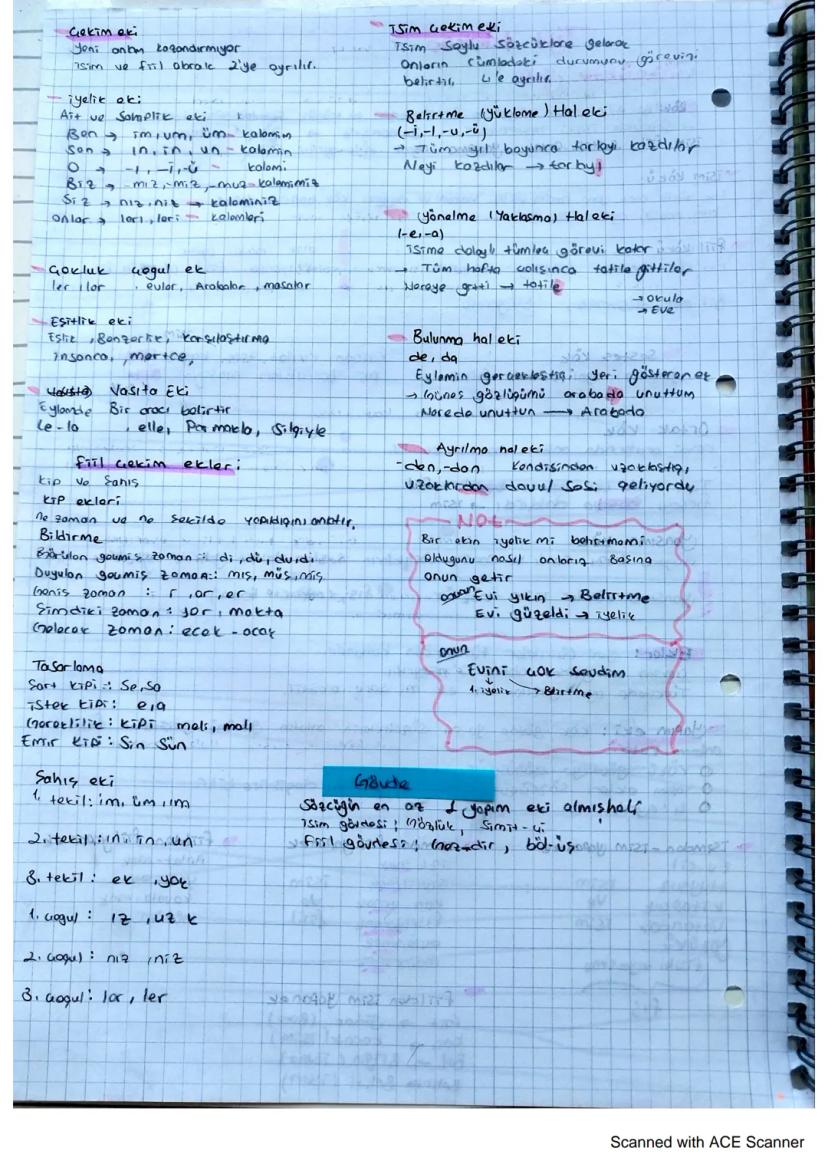 Çekim eki
Yeni anlam kazandırmıyor
isim ve fiil olarak 2'ye ayrılır.
- iyelik eki
Ait ve Sahiplik eki
Ben → im, um, üm - kalemim
Sen → ın, in, un - kalemin
O → -ı, -i, -ü - kalemi
Biz → mız, -miz, -muz - kalemimiz
Siz → nız, niz → kaleminiz
onlar → ları, leri - kalemleri
- Çokluk çoğul ek
ler, lar , evler, Arabalar, masalar
- Eşitlik eki
Eşlik, Benzerlik, karşılaştırma
insanca, mertçe,
- Vasıta Eki
Eylemde Bir aracı belirtir
le-la , elle, Parmakla, Silgiyle
fiil çekim ekleri:
Kip ve Şahıs
Kip ekleri
ne zaman ve ne şekilde yapıldığını anlatır.
Bildirme
Görülen geçmiş zaman : di, dü, du, dı
Duyulan geçmiş zaman : mış, müş, miş
Geniş zaman : r, ar, er
Şimdiki zaman : yor, makta
Gelecek zaman : ecek - acak
Tasarlama
Şart kipi : Se, sa
istek kipi : e, a
Gereklilik : kipi meli, malı
Emir kipi : Sin Sün
Şahıs eki
1. tekil : im, üm, ım
2. tekil : in, ın, un
3. tekil : ek, yok
1. çoğul : ız, uz k
2. çoğul : nız, iniz
3. çoğul : lar, ler
- isim çekim eki
isim Soylu Sözcüklere gelerek
onların cümledeki durumunu görevini
belirtir, 4'e ayrılır.
- Belirtme (yükleme) Hal eki
(-i, -ı, -u, -ü)
→ Tüm yıl boyunca tarlayı kazdılar
Neyi kazdılar → tarlayı
- Yönelme (Yaklaşma) Hal eki
(-e, -a)
isime dolaylı tümleç görevi katar
→ Tüm hafta çalışınca tatile gittiler
Nereye gitti → tatile
→ Okula
→ Eve
- Bulunma hal eki
de, da
Eylemin gerçekleştiği yeri gösteren ek
→ Güneş gözlüğümü arabada unuttum
Nerede unuttun → Arabada
- Ayrılma hal eki
-den, -dan kendisinden uzaklaştığı,
uzaklardan davul sesi geliyordu
NOT
Bir ekin iyelik mi belirtmemi
olduğunu nasıl anlarız Başına
onun getir
onun Evi yıkın → Belirtme
Evi güzeldi → iyelik
onun
Evini çok sevdim
1. iyelik → Belirtme
Gövde
Sözcüğün en az 1 yapım eki almış hali
isim gövdesi ; Gözlük, Simit-çi
Fiil gövdesi ; Gez-dir, böl-üş
Scanned with ACE Scanner